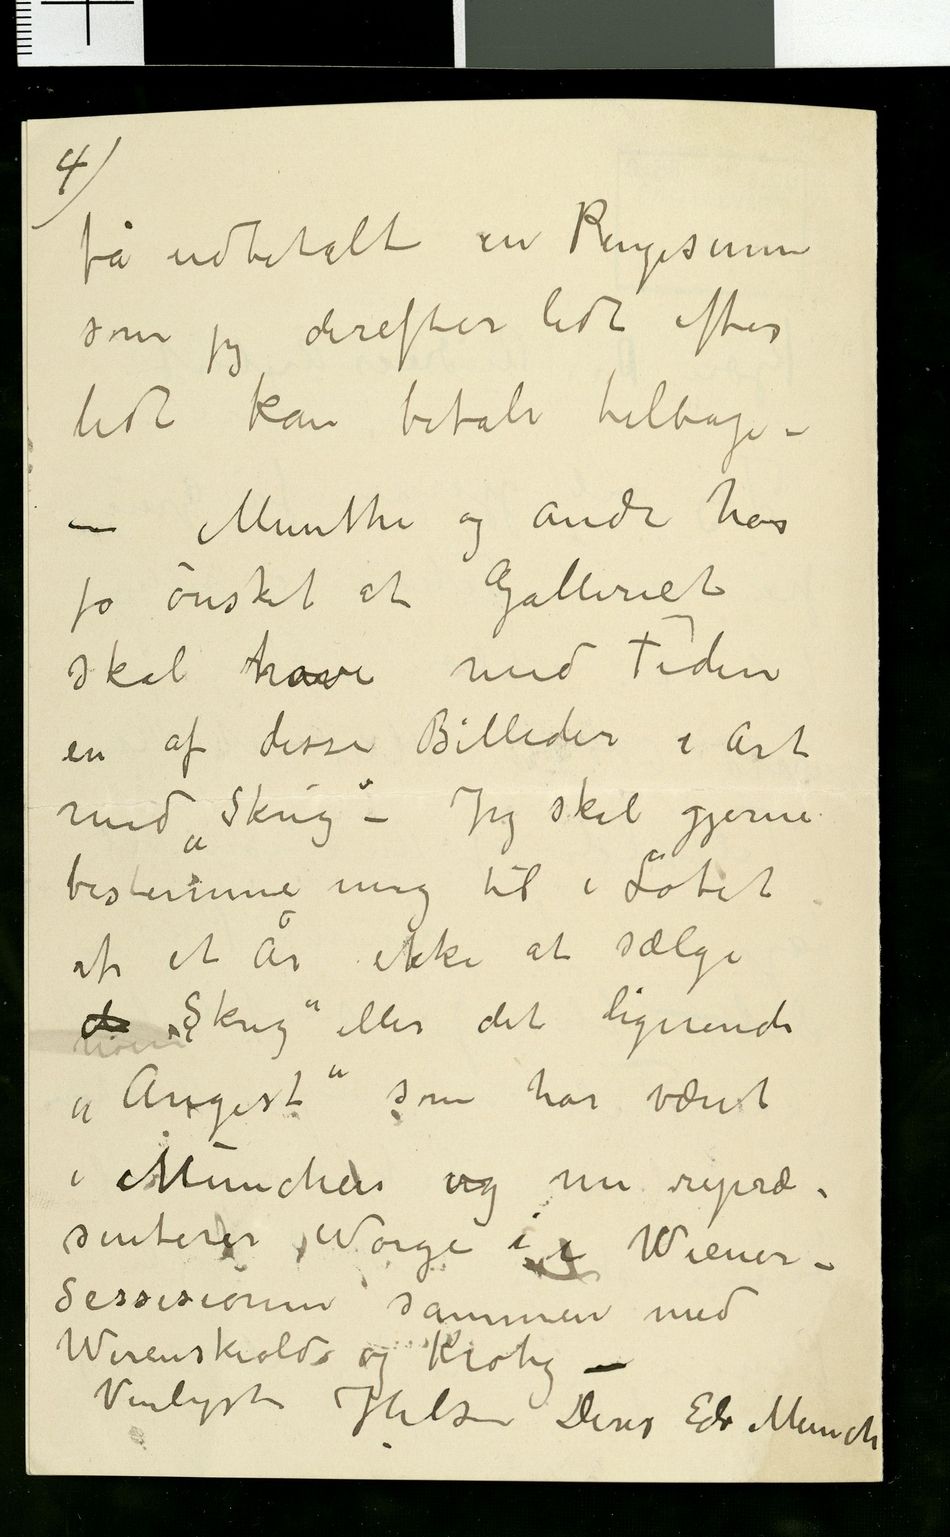 4)
få udbetalt en Pengesum
som jeg derefter lidt efter
lidt kan betale tilbage –
— Munthe og andre har
jo ønsket at Galleriet
skal have med Tiden
en af disse Billeder i Art
med „Skrig“ – Jeg skal gjerne
bestemme mig til i Løbet
af et År ikke at sælge
„Skrig“ eller det lignende
„Angest“ som har været
i München og nu repræ-
senterer Norge i Wiener-
Sessisionen sammen med
Werenskiold og Krohg –
Venligst Hilsen Deres Edv Munch